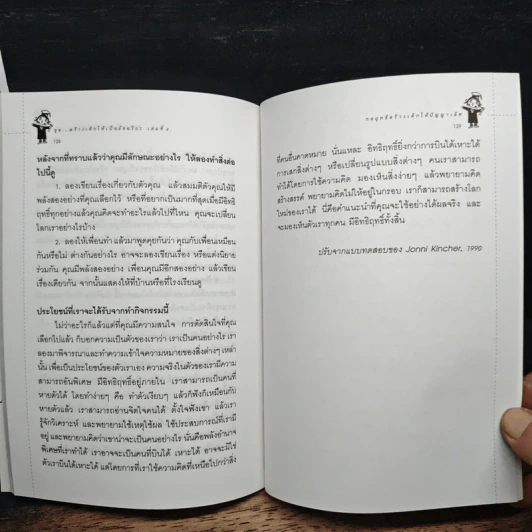 คุย...สร้างเด็กให้เป็นอัจฉริยะ เล่มที่ 4
128
หลังจากที่ทราบแล้วว่าคุณมีลักษณะอย่างไร ให้ลองทำสิ่งต่อ
ไปนี้ดู
1. ลองเขียนเรื่องเกี่ยวกับตัวคุณ แล้วสมมติตัวคุณให้มี
พลังสองอย่างที่คุณเลือกไว้ หรือที่อยากเป็นมากที่สุดเมื่อมีอิทธิ
ฤทธิ์ทุกอย่างแล้วคุณคิดจะทำอะไรแล้วไปที่ไหน คุณจะเปลี่ยน
โลกเราอย่างไรบ้าง
2. ลองให้เพื่อนทำ แล้วมาพูดคุยกันว่า คุณกับเพื่อนเหมือน
กันหรือไม่ ต่างกันอย่างไร อาจจะลองเขียนเรื่อง หรือแต่งนิยาย
ร่วมกัน คุณมีพลังสองอย่าง เพื่อนคุณมีอีกสองอย่าง แล้วเขียน
เรื่องเดียวกัน จากนั้นแสดงให้ที่บ้านหรือที่โรงเรียนดู
ประโยชน์ที่เราจะได้รับจากทำกิจกรรมนี้
ไม่ว่าอะไรก็แล้วแต่ที่คุณมีความสนใจ การตัดสินใจที่คุณ
เลือกไปแล้ว ก็บอกความเป็นตัวของเราว่า เราเป็นคนอย่างไร เรา
ลองมาพิจารณาและทำความเข้าใจความหมายของสิ่งต่างๆ เหล่า
นั้น เพื่อเป็นประโยชน์ของตัวเราเอง ความจริงในตัวของเรามีความ
สามารถอันพิเศษ มีอิทธิฤทธิ์อยู่ภายใน เราสามารถเป็นคนที่
หายตัวได้ โดยทำง่ายๆ คือ ทำตัวเงียบๆ แล้วก็ฟังก็เหมือนกับ
หายตัวแล้ว เราสามารถอ่านจิตใจคนได้ ตั้งใจฟังเขา แล้วเรา
รู้จักวิเคราะห์ และพยายามใช้เหตุใช้ผล ใช้ประสบการณ์ที่เรามี
อยู่ และพยายามคิดว่าเขาน่าจะเป็นคนอย่างไร นั่นคือพลังอำนาจ
พิเศษที่เราทำได้ เราอาจจะเป็นคนที่บินได้ เหาะได้ อาจจะมิใช่
ตัวเราบินได้เหาะได้ แต่โดยการที่เราใช้ความคิดที่เหนือไปกว่าสิ่ง
กลยุทธ์สร้างเด็กให้ปัญญาเลิศ
129
ที่คนอื่นคาดหมาย นั่นแหละ อิทธิฤทธิ์ยิ่งกว่าการบินได้เหาะได้
การเสกสิ่งต่างๆ หรือเปลี่ยนรูปแบบสิ่งต่างๆ คนเราสามารถ
ทำได้โดยการใช้ความคิด มองเห็นสิ่งง่ายๆ แล้วพยายามคิด
สร้างสรรค์ พยายามคิดไม่ให้อยู่ในกรอบ เราก็สามารถสร้างโลก
ใหม่ของเราได้ นี่คือคำแนะนำที่คุณจะใช้อย่างได้ผลจริง และ
จะมองเห็นตัวเราทุกคน มีอิทธิฤทธิ์ทั้งสิ้น
ปรับจากแบบทดสอบของ Jonni Kincher, 1990